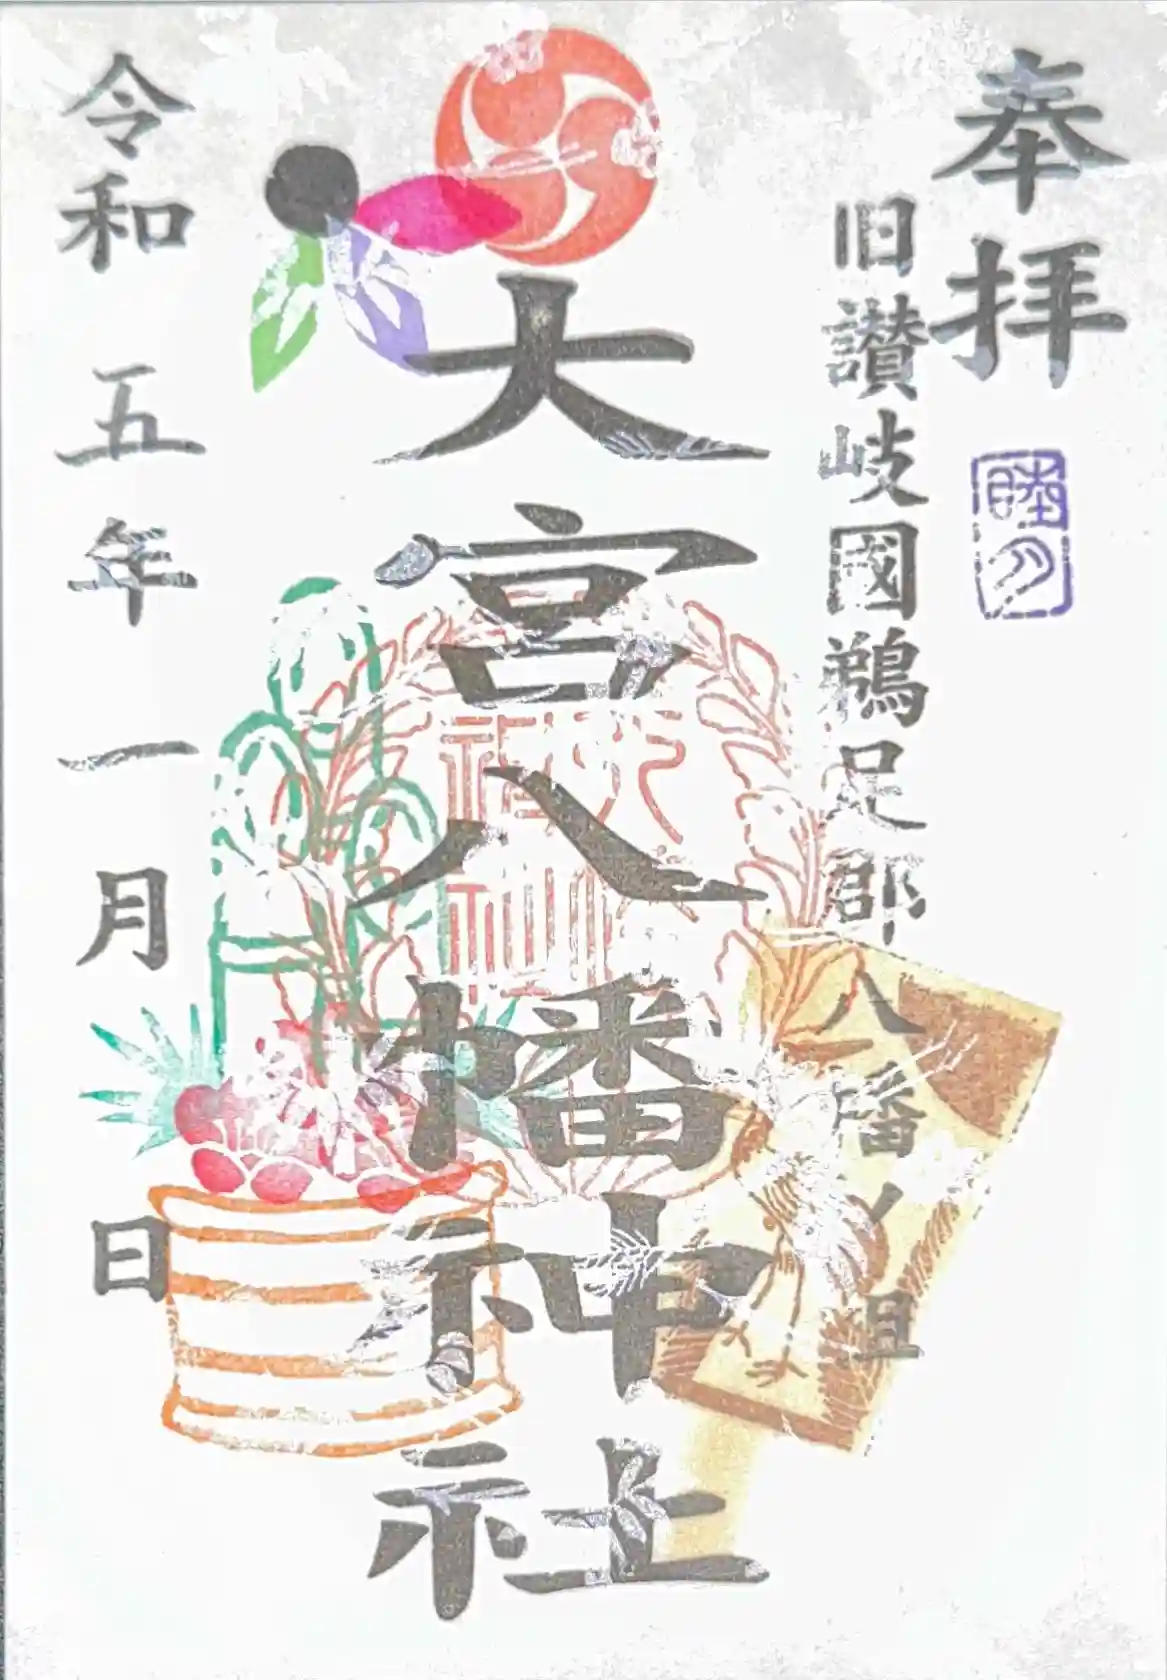 奉拝
睦月
旧讃岐國鵜足郡 八幡ノ
大宮八幡神社
令和五年一月 日